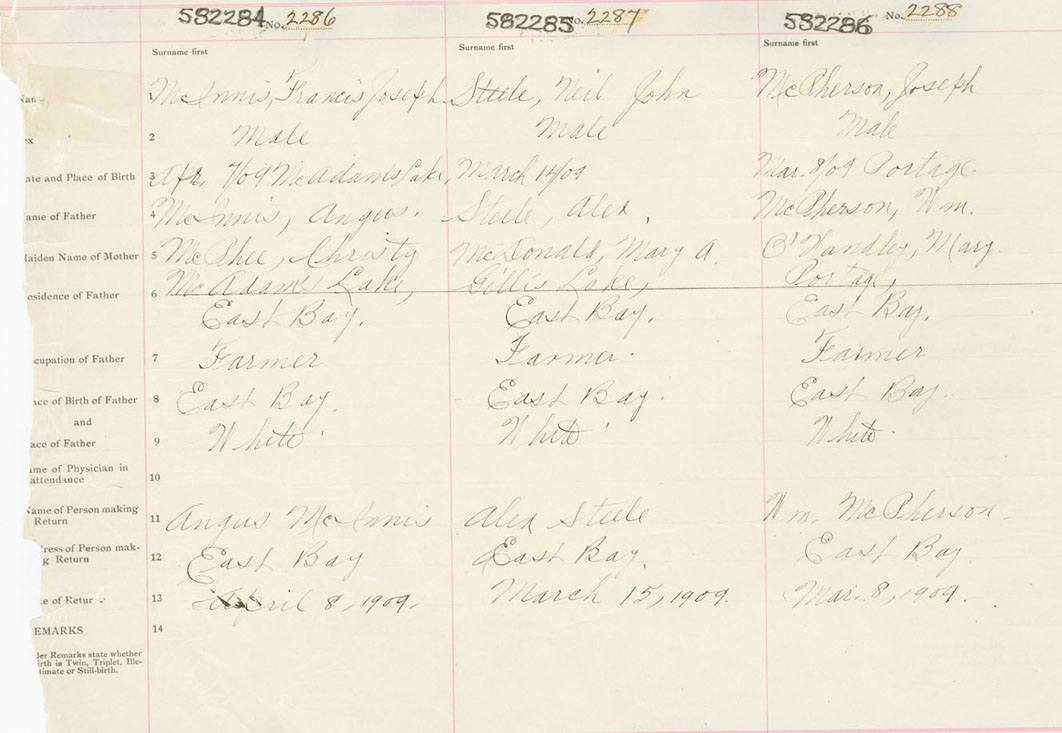 582284 No. 2286 582285 No. 2287 582286 No. 2288
Surname first Surname first Surname first
1 McInnis, Francis Joseph Steele, Neil John McPherson, Joseph
ex 2 Male Male Male
ate and Place of Birth 3 Apr. 7/09 McAdams Lake, March 14/09 Mar. 8/09 Portage
ame of Father 4 McInnis, Angus. Steele, Alex, McPherson, Wm.
Maiden Name of Mother 5 McPhee, Christy McDonald, Mary A. O'Handley, Mary.
esidence of Father 6 McAdam's Lake, Gillis Lake, Portage,
East Bay. East Bay. East Bay.
cupation of Father 7 Farmer Farmer. Farmer
ace of Birth of Father 8 East Bay. East Bay. East Bay.
and
ace of Father 9 White White White.
ame of Physician in
attendance 10
Name of Person making
Return 11 Angus McInnis Alex Steele Wm. McPherson.
ress of Person mak-
g Return 12 East Bay East Bay. East Bay
e of Retur 13 April 8, 1909. March 15, 1909. Mar. 8, 1909.
EMARKS 14
der Remarks state whether
irth is Twin, Triplet, Ille-
timate or Still-birth.